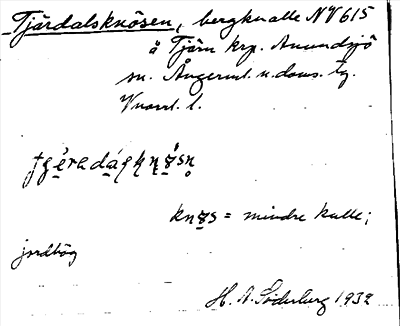 Tjärdalsknösen, bergknalle NV 615
å Tjärn krp. Anundsjö
sn. Ångerml. n. doms. tg.
Vnorrl. l.
knɞs = mindre kulle;
jordhög
H. A. Söderberg 1932